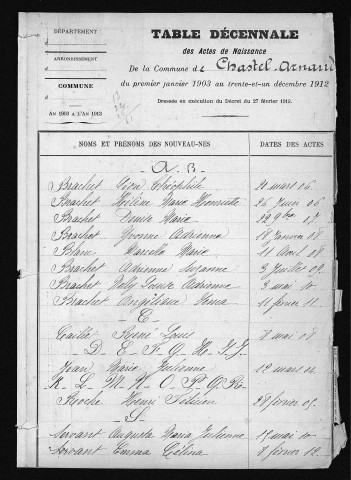 DÉPARTEMENT
ARRONDISSEMENT
COMMUNE
AN 1903 A L'AN 1912
TABLE DÉCENNALE
des Actes de Naissance
De la Commune de Chastel-Arnaud
du premier janvier 1903 au trente-et-un décembre 1912
Dressée en exécution du Décret du 27 février 1912.
NOMS ET PRÉNOMS DES NOUVEAU-NÉS DATES DES ACTES
A. B
Brachet Théophile 21 mars 06.
Brachet Hélène Marie Henriette 26 Juin 06
Brachet Denise Maria 29 9bre 07
Brachet Yvonne Adrienne 18 Janvier 08
Blanc Marcelle Marie 11 Avril 08
Brachet Adrienne Suzanne 3 Juillet 09.
Brachet Louise Adrienne 3 mai 10
Brachet Irma 11 février 11.
C
René Louis 8 mai 08
D. E. F. G. H. I. J.
Jean Marie 12 mars 04
K. L. M. N. O. P. Q. R.
Roche Henri 28 février 05.
S
Servant Augusta Maria Julienne 15 mai 10
Servant Emma Célina 8 février 12.